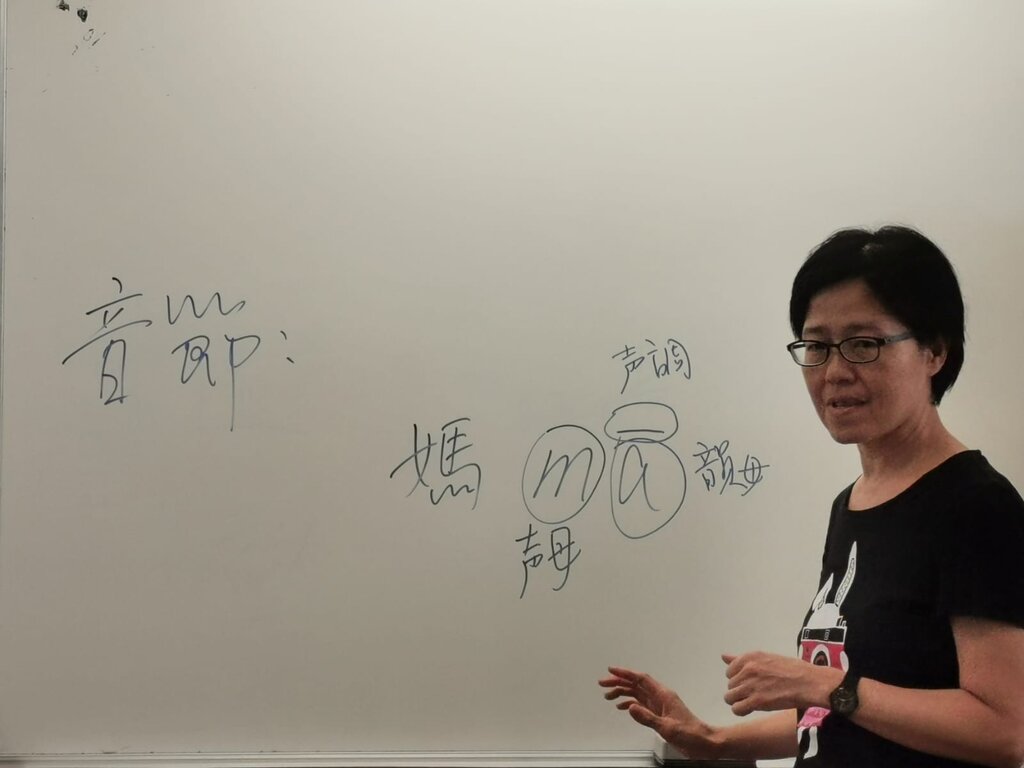 音節:
声调
媽 mā 韻母
声母